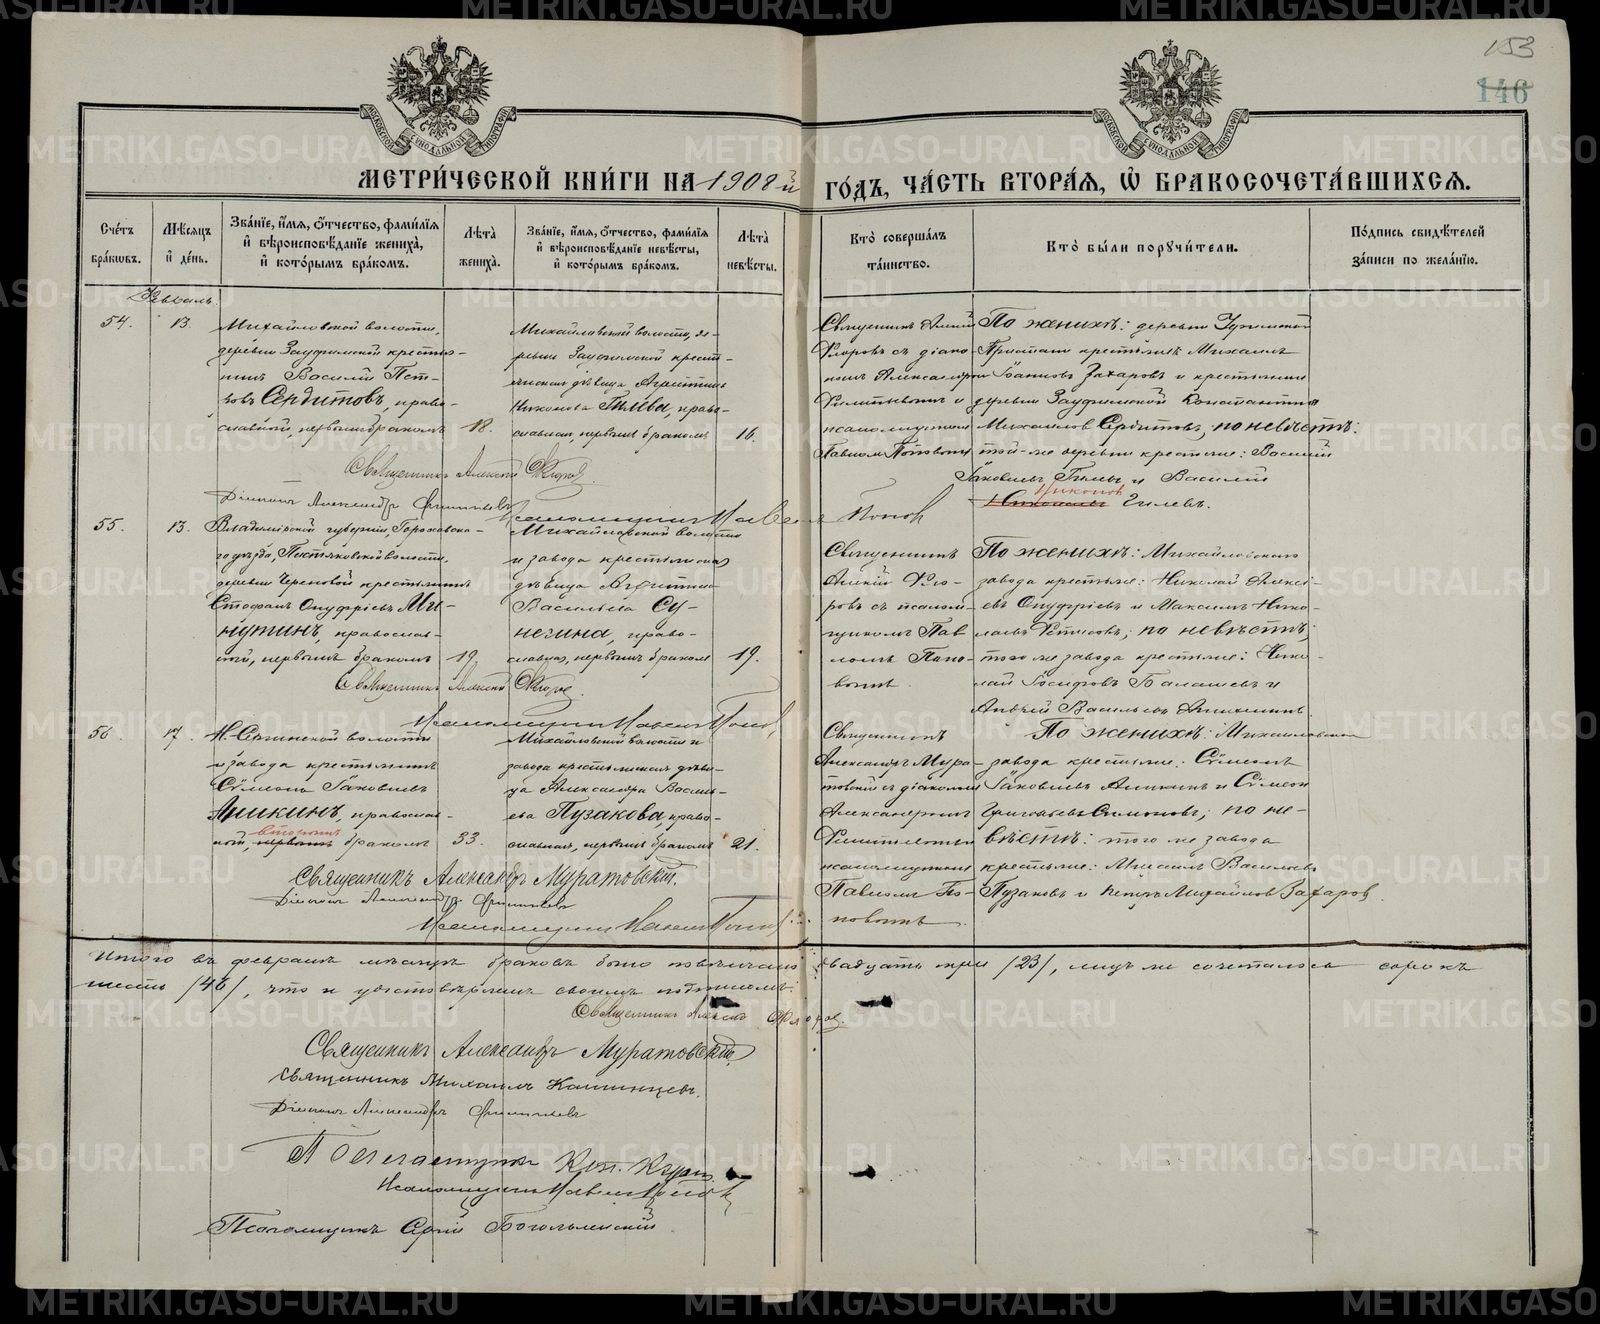 153
146
МЕТРИ́ЧЕСКОЙ КНИ́ГИ НА 1908 й ГО́ДЪ, ЧА́СТЬ ВТОРА́Я, Ѽ БРАКОСОЧЕТА́ВШИХСЯ.
Сче́тъ бра́кѡвъ.
Мѣ́сяцъ и҆ де́нь.
Зва́нїе, и҆́мя, ѻ҆́тчество, фами́лїя и҆ вѣроисповѣ́данїе жениха̀, и҆ кото́рымъ бра́комъ.
Лѣ́та жениха̀.
Зва́нїе, и҆́мя, ѻ҆́тчество, фами́лїя и҆ вѣроисповѣ́данїе невѣ́сты, и҆ кото́рымъ бра́комъ.
Лѣ́та невѣ́сты.
Кто̀ соверша́лъ та́инство.
Кто̀ бы́ли порꙋчи́тели.
По́дпись свидѣ́телей за́писи по жела́нїю.
Февраль.
54.
13.
Михайловской волости,
деревни Зауфимской крестья-
нинъ Василій Пет-
ровъ Сердитовъ, право-
славный, первымъ бракомъ
18.
Михайловской волости, де-
ревни Зауфимской крест-
янская дѣвица Агриппина
Никонова Гилева, право-
славная, первымъ бракомъ
16.
Священникъ Алексій
Флоровъ съ діако-
номъ Александромъ
Филипьевымъ и
псаломщикомъ
Павломъ Поповымъ
По женихѣ: деревни Уфимской
Пристани крестьянинъ Михаилъ
Іоанновъ Захаровъ и крестьянинъ
деревни Зауфимской Константинъ
Михайловъ Сердитовъ; по невѣстѣ:
той-же деревни крестьяне: Василій
Іаковлевъ Гилевъ и Василій
Никоновъ
Гилевъ.
Священникъ Алексій Флоровъ
Діаконъ Александръ Филипьевъ
Псаломщикъ Павелъ Поповъ
55.
13.
Владимірской губерніи, Гороховска-
го уѣзда, Пестяковской волости,
деревни Череновой крестьянинъ
Стефанъ Онуфріевъ Ми-
нутинъ, православ-
ный, первымъ бракомъ
19.
Михайловской волости
и завода крестьянская
дѣвица Агриппина
Васильева Су-
негина, право-
славная, первымъ бракомъ
19.
Священникъ
Алексій Фло-
ровъ съ псалом-
щикомъ Пав
ломъ Попо-
вымъ.
По женихѣ: Михайловскаго
завода крестьяне: Николай Алексѣ-
евъ Онуфріевъ и Максимъ Нико-
лаевъ Фетисовъ; по невѣстѣ;
того же завода крестьяне: Нико-
лай Іосифовъ Балашевъ и
Андрей Васильевъ
Священникъ Алексій Флоровъ.
Псаломщикъ Павелъ Поповъ
56.
17.
Н.-Сергинской волости
и завода крестьянинъ
Сімеонъ Іаковлевъ
Аникинъ, православ-
вторымъ
ный, первымъ бракомъ
33.
Михайловской волости и
завода крестьянская дѣви-
ца Александра Василь-
ева Пузакова, право-
славная, первымъ бракомъ
21.
Священникъ
Александръ Мура-
товскій съ діакономъ
Александромъ
Филипьевымъ
псаломщикомъ
Павломъ По-
повымъ.
По женихѣ: Михайловскаго
завода крестьяне: Сімеонъ
Іаковлевъ Аникинъ и Сімеонъ
Григорьевъ Симоновъ; по не-
вѣстѣ: того же завода
крестьяне: Михаилъ Васильевъ
Пузаковъ и Петръ Михайловъ Захаровъ.
Священникъ Александръ Муратовскій.
Діаконъ Александръ Филипьевъ
Псаломщикъ Павелъ Поповъ
Итого въ февралѣ мѣсяцѣ браковъ было повѣнчано двадцать три /23/, лицъ же сочеталось сорокъ
шесть /46/, что и удостовѣряемъ своимъ подписомъ.
Священникъ Алексій Флоровъ.
Священникъ Александръ Муратовскій
Священникъ Михаилъ Кашинцевъ.
Діаконъ Александръ Филипьевъ
Псаломщикъ Павелъ Поповъ
Псаломщикъ Сергій Богольпскій
METRIKI.GASO-URAL.RU